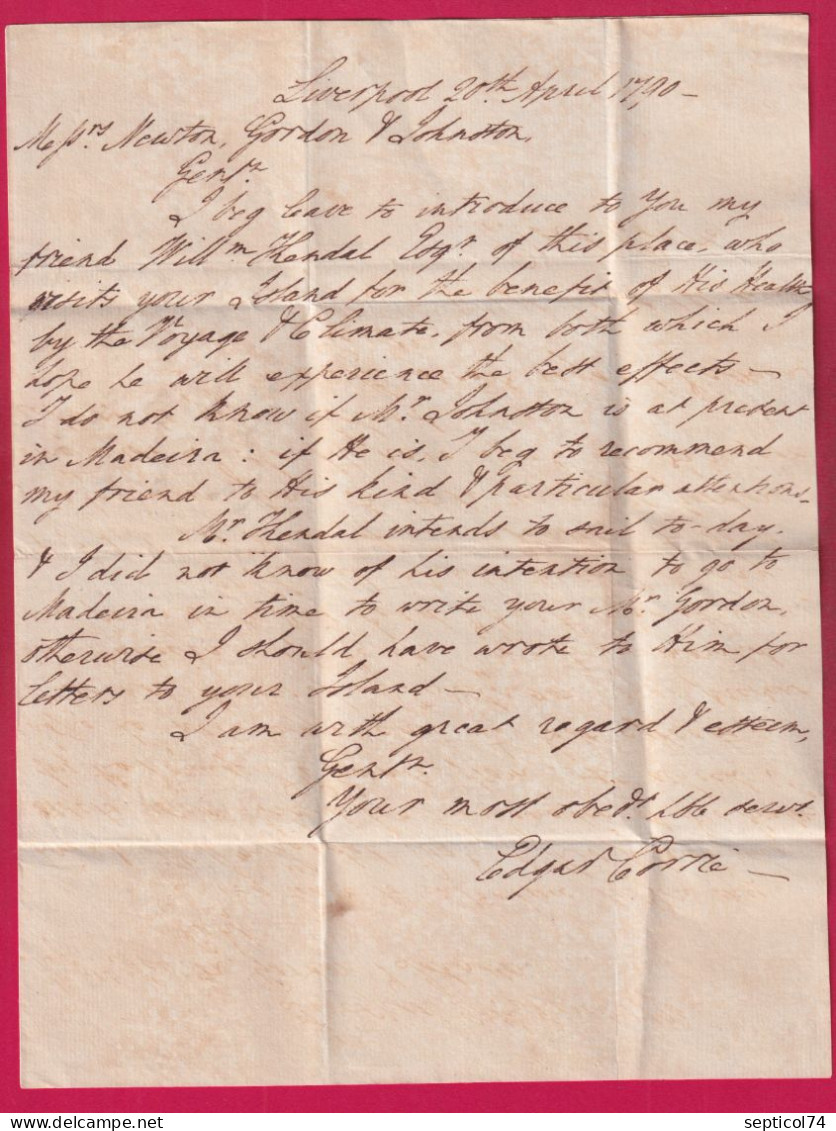 Liverpool 20th. April 1790 —
Messrs. Newton, Gordon & Johnston,
Gentn.
I beg leave to introduce to You my
friend Willm. Kendal Esqr. of this place, who
visits your Island for the benefit of His Health
by the Voyage & Climate, from both which I
hope he will experience the best effects —
I do not know if Mr. Johnston is at present
in Madeira : if He is, I beg to recommend
my friend to His kind & particular attentions.
Mr. Kendal intends to sail to-day,
& I did not know of his intention to go to
Madeira in time to write your Mr. Gordon,
otherwise I should have wrote to Him for
letters to your Island —
I am with great regard & esteem,
Gentn.
Your most obedt. hble servt.
Edgar Corrie —
septicol74